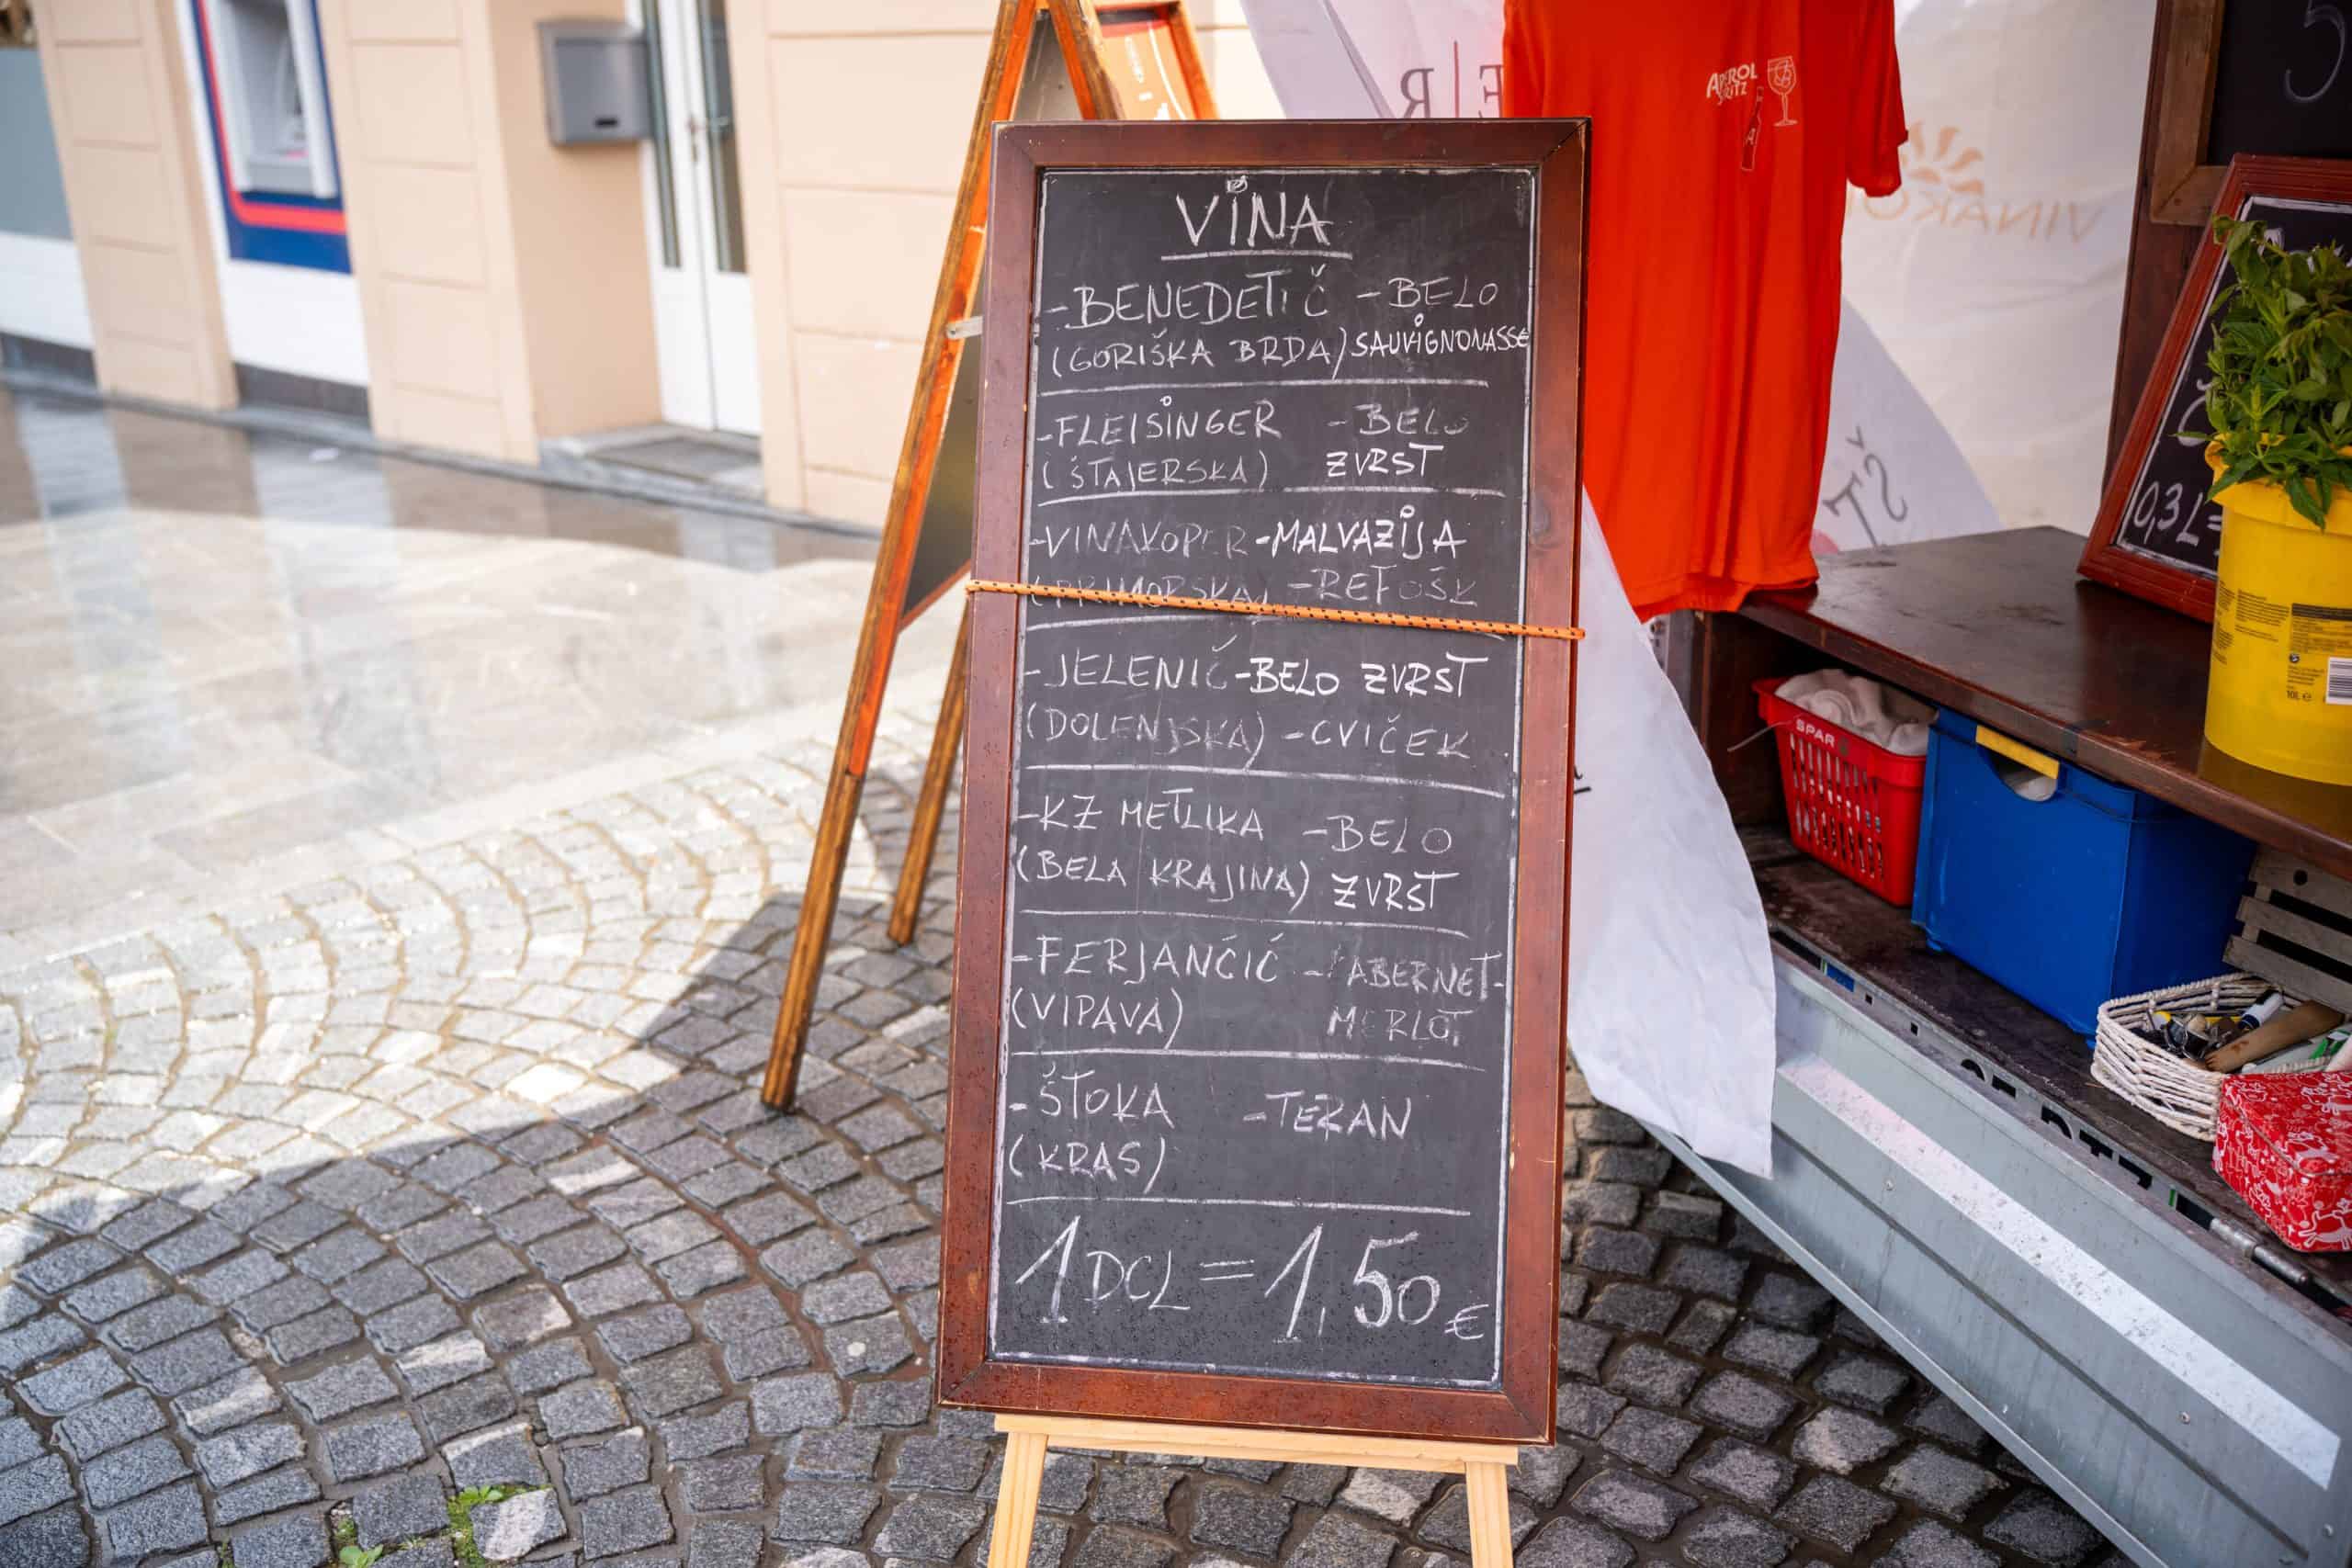 VINA
-BENEDETIČ -BELO
(GORIŠKA BRDA) SAUVIGNONASSE
-FLEISINGER -BELO
(ŠTAJERSKA) ZVRST
-VINAKOPER -MALVAZIJA
(PRIMORSKA) -REFOŠK
-JELENIČ -BELO ZVRST
(DOLENJSKA) -CVIČEK
-KZ METLIKA -BELO
(BELA KRAJINA) ZVRST
-FERJANČIČ -CABERNET-
(VIPAVA) MERLOT
-ŠTOKA -TERAN
(KRAS)
1 DCL = 1,50 €
APEROL
SPRITZ
SPAR
0,3 L=
10L e
5